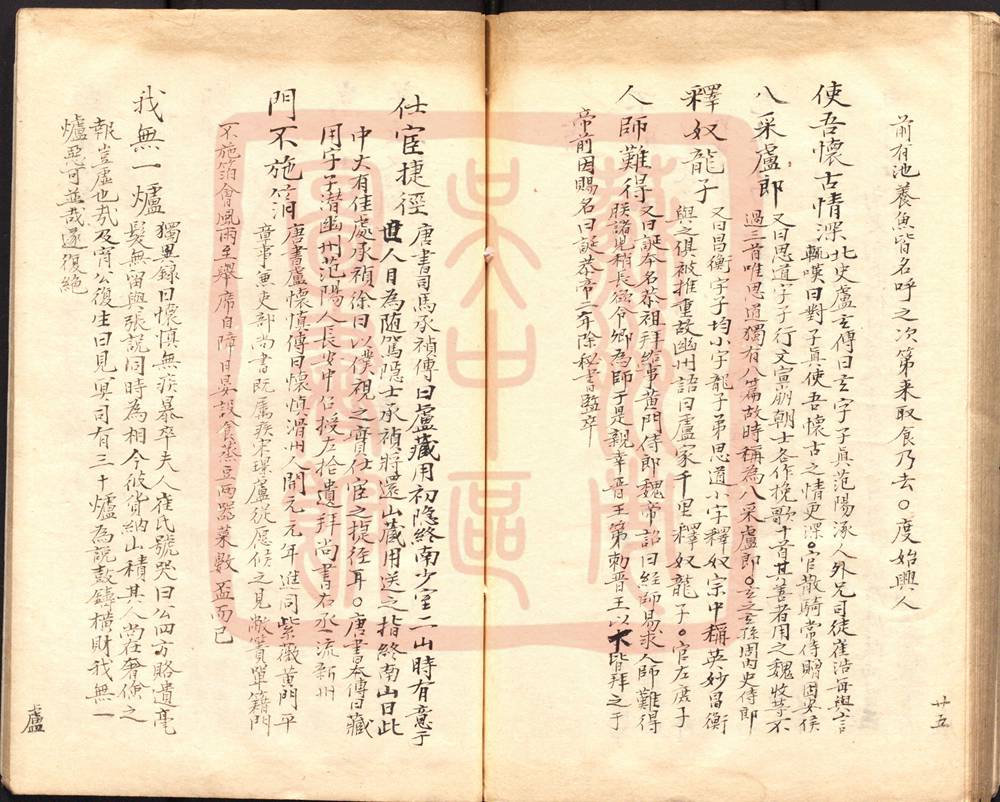 廿五
前有池養魚皆名呼之次第来取食乃去○度始興人
使吾懷古情深北史盧玄傳曰玄字子眞范陽涿人外兄司徒崔浩每與言
輒嘆曰對子眞使吾懷古之情更深○官散騎常侍贈固安侯
八采盧郎又曰思道字子行文宣崩朝士各作挽歌十首其善者用之魏收等不
過三首唯思道獨有八篇故時稱為八采盧郎○玄之玄孫周内史侍郎
釋奴龍子又曰昌衡字子均小字龍子弟思道小字釋奴宗中稱英妙昌衡
與之俱被推重故幽州語曰盧家千里釋奴龍子○官左庶子
人師難得又曰誕本名恭祖拜給事黄門侍郎魏帝詔曰経師易求人師難得
朕諸兒稍長欲令卿為師于是親幸晋王第勅晋王以下皆拜之于
帝前因賜名曰誕恭帝二年除秘書監卒
仕宦捷徑唐書司馬承禎傳曰盧藏用初隐終南少室二山時有意于
世人目為随駕隱士承禎將還山藏用送之指終南山曰此
中大有佳處承禎徐曰以僕視之實仕宦之捷徑耳○唐書本傳曰藏
用字子潛幽州范陽人長安中召授左拾遺拜尚書右丞流新州
門不施箔唐書盧懷慎傳曰懷慎滑州人開元元年進同紫薇黄門平
章事兼吏部尚書既属疾宋璟盧從愿候之見敝簀單籍門
不施箔會風雨至舉席自障日晏設食蒸豆兩器菜數盃而已
我無一爐獨異録曰懷慎無疾暴卒夫人崔氏號哭曰公四方賂遺毫
髮無留與張説同時為相今彼貨納山積其人尚在奢儉之
報豈虚也哉及宵公復生曰見冥司有三十爐為説鼓鑄横財我無一
爐惡可並哉遂復絶
盧